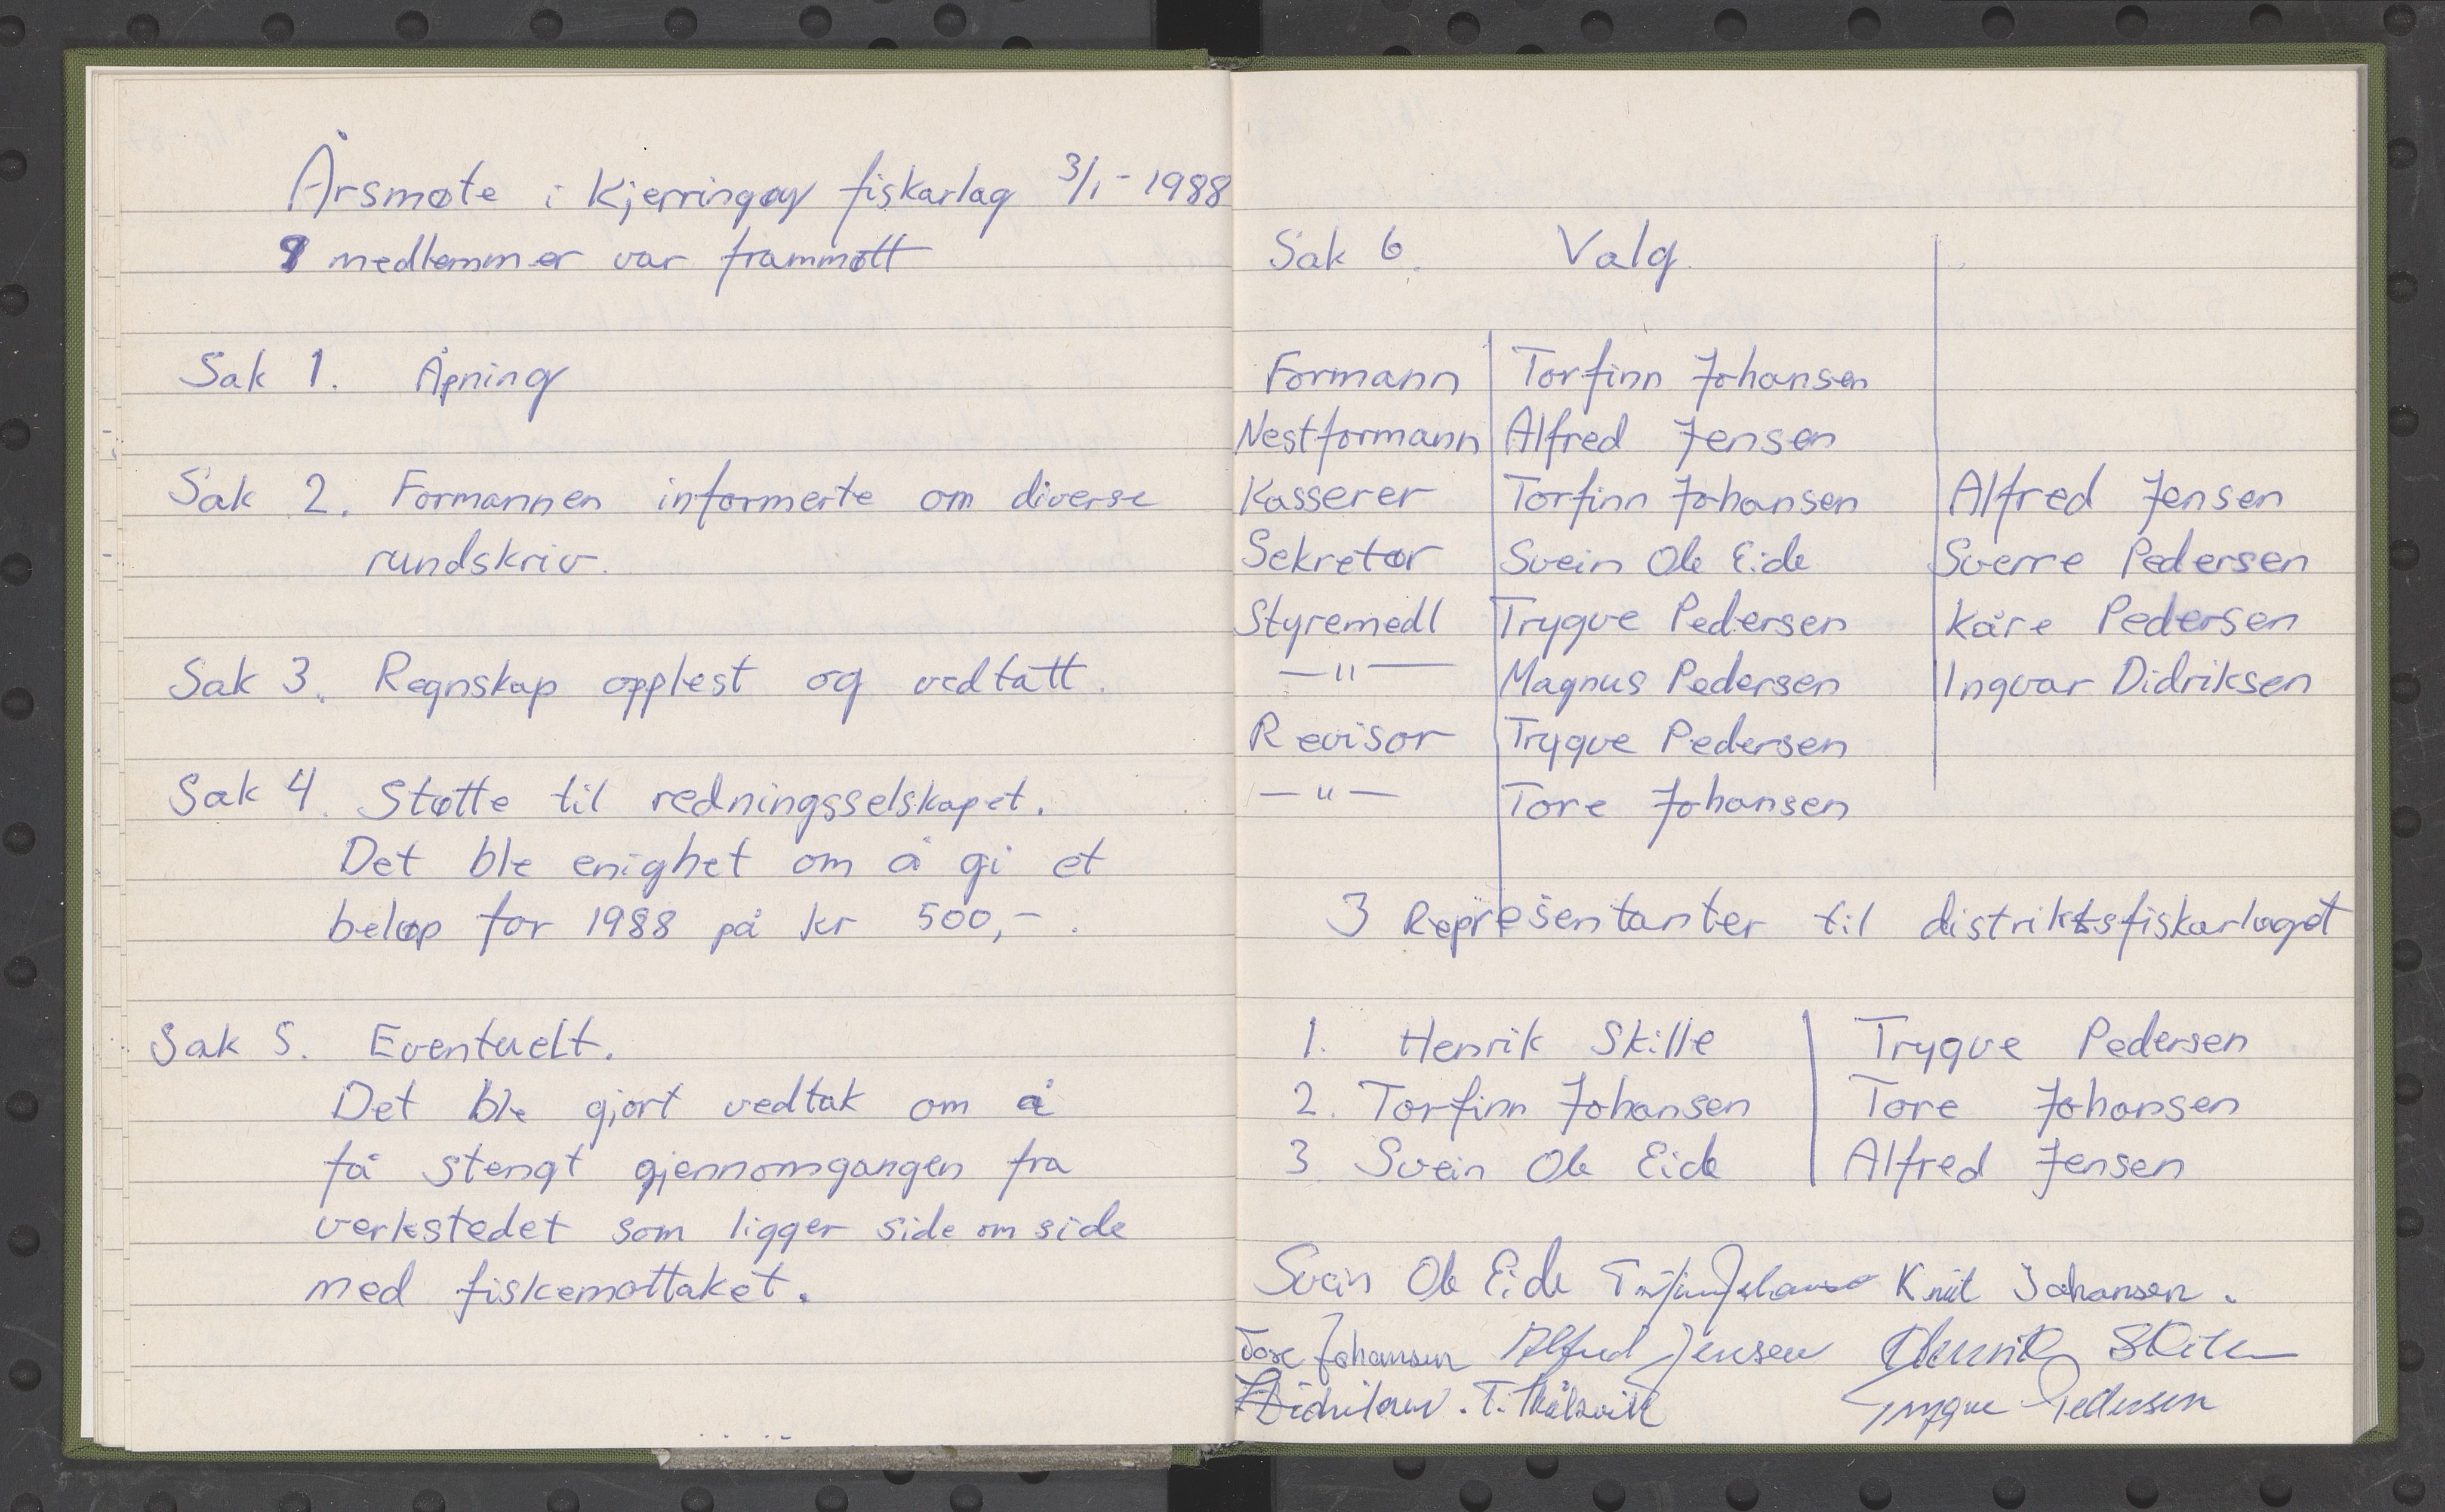 Årsmøte i Kjerringøy fiskarlag 3/1-1988
9 medlemmer var frammøtt
Sak 1. Åpning
Sak 2. Formannen informerte om diverse
rundskriv.
Sak 3. Regnskap opplest og vedtatt.
Sak 4. Støtte til redningsselskapet.
Det ble enighet om å gi et
beløp for 1988 på kr 500,-.
Sak 5. Eventuelt.
Det ble gjort vedtak om å
få stengt gjennomgangen fra
verkstedet som ligger side om side
med fiskemottaket.
Sak 6. Valg.
Formann Torfinn Johansen
Nestformann Alfred Jensen
Kasserer Torfinn Johansen Alfred Jensen
Sekretær Svein Ole Eide Sverre Pedersen
Styremedl Trygve Pedersen Kåre Pedersen
—"— Magnus Pedersen Ingvar Didriksen
Revisor Trygve Pedersen
—"— Tore Johansen
3 Representanter til distriktsfiskarlaget
1. Henrik Skille Trygve Pedersen
2. Torfinn Johansen Tore Johansen
3 Svein Ole Eide Alfred Jensen
Svein Ole Eide Torfinn Johansen Knut Johansen.
Tore Johansen Alfred Jensen Henrik Skille
Trygve Pedersen